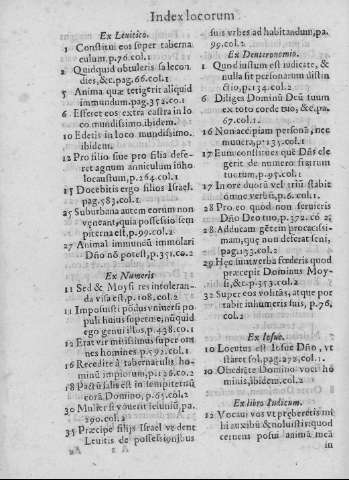 Index locorum
Ex Leuitico.
1 Constitui eos super taberna
culum.p.76.col.1
2 Quidquid obtuleris sale con
dies,&c.pag.66.col.1
5 Anima quæ tetigerit aliquid
immundum.pag.372.co.1
6 Efferet eos extra castra in lo
co mundissimo.ibidem.
10 Edetis in loco mundissimo.
ibidem.
12 Pro filio siue pro filia defe-
ret agnum anniculum in ho
locaustum, p.264.col.1
15 Docebitis ergo filios Israel.
pag.583.col.1
25 Suburbana autem eorum non
veneant, quia possessio sem
piterna est, p.99.col.2
27 Animal immundū immolari
Dño nõ potest, p.351.co.2
Ex Numeris
11 Sed & Moysi res intoleran-
da visa est, p.108.col.2
11 Imposuisti põdus vniuersi po
puli huius super me, nūquid
ego genui illos, p.438.co.1
12 Erat vir mitissimus super om
nes homines p.592.col.1
16 Recedite à tabernaculis ho-
minū impiorum, p.126.co.2
18 Pactū salis est in sempiternū
corā Domino, p.65.col.2
30 Mulier si vouerit ieiuniū, pa.
290.col.2
35 Præcipe filijs Israel vt dent
Leuitis de possessionibus
suis vrbes ad habitandum, pa.
99.col.2
Ex Deuteronomio.
1 Quod iustum est iudicate, &
nulla sit personarum distin
ctio, p.134.col.2
6 Diliges Dominū Deū tuum
ex toto corde tuo, &c.pa.
67.col.1.
16 Non accipiam personā, nec
munera, p.135.col.1
17 Eum constitues quē Dñs ele
gerit de numero fratrum
tuorum, p.95.col.1
17 In ore duorū vel triū stabit
omne verbū, p.6.col.1.
28 Pro eo quod non seruieris
Dño Deo tuo, p.372.co 2
28 Adducam gētem procacissi-
mam, que non deferat seni,
pag.133.col.1
29 Hęc sunt verba fœderis quod
præcepit Dominus Moy-
si,&c.p.353.col.2
32 Super eos volitās, atque por
tabit in humeris suis, p.76,
col.2
Ex Iosue.
10 Locutus est Iosue Dño, vt
staret sol, pag.272, col.1.
10 Obediēte Domino voci ho
minis, ibidem.col.2
Ex libro Iudicum.
12 Vocaui vos vt præberetis mi
hi auxiliū & noluistis: quod
cernens posui animā meā
in